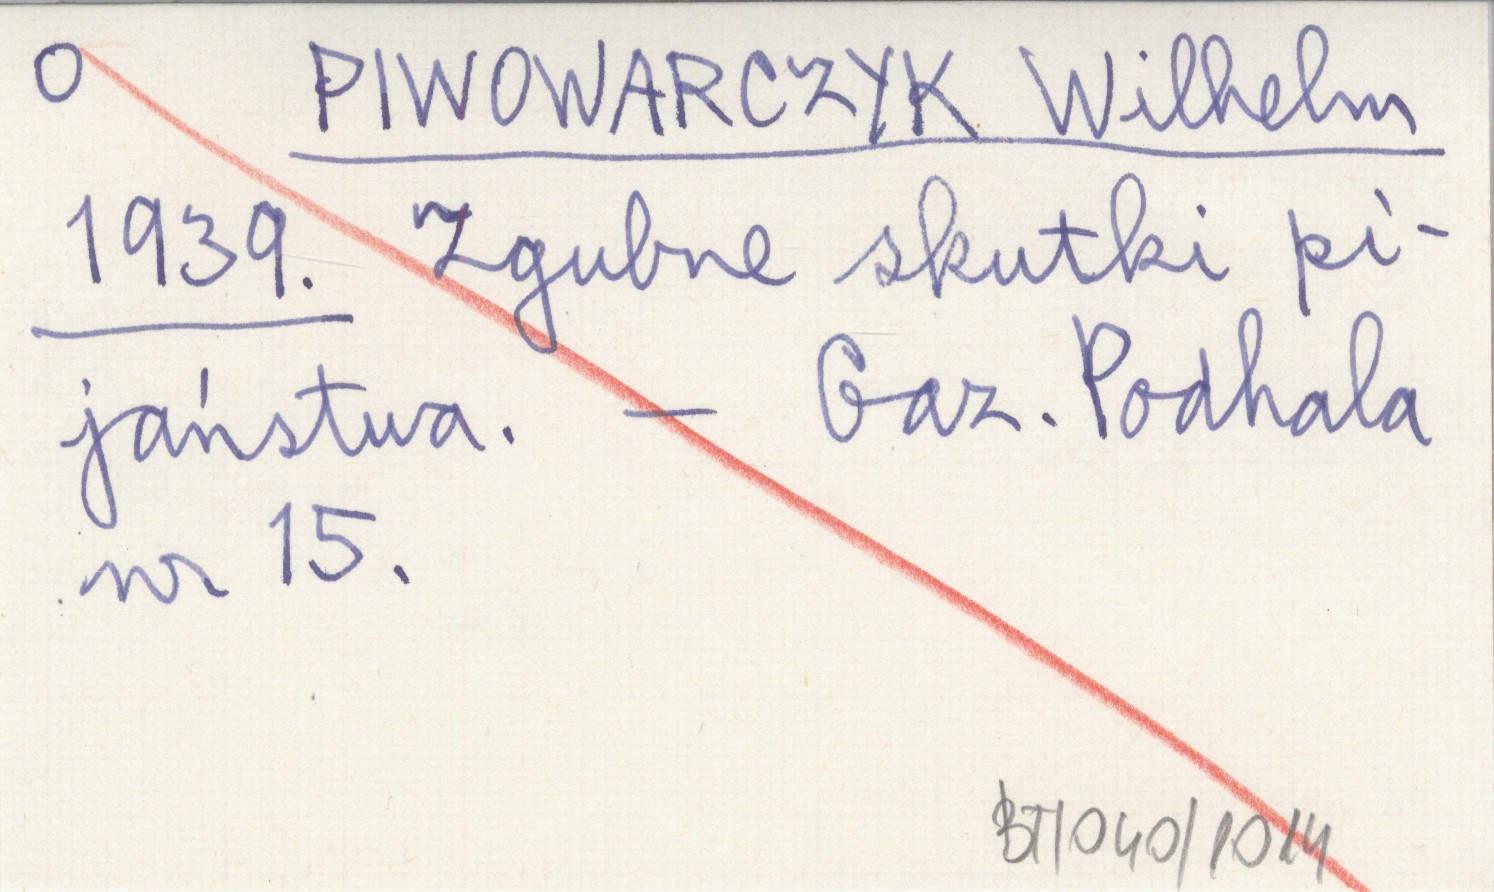 O PIWOWARCZYK Wilhelm
1939. Zgubne skutki pi-
jaństwa. — Gaz. Podhala
nr 15.
BT/040/1014